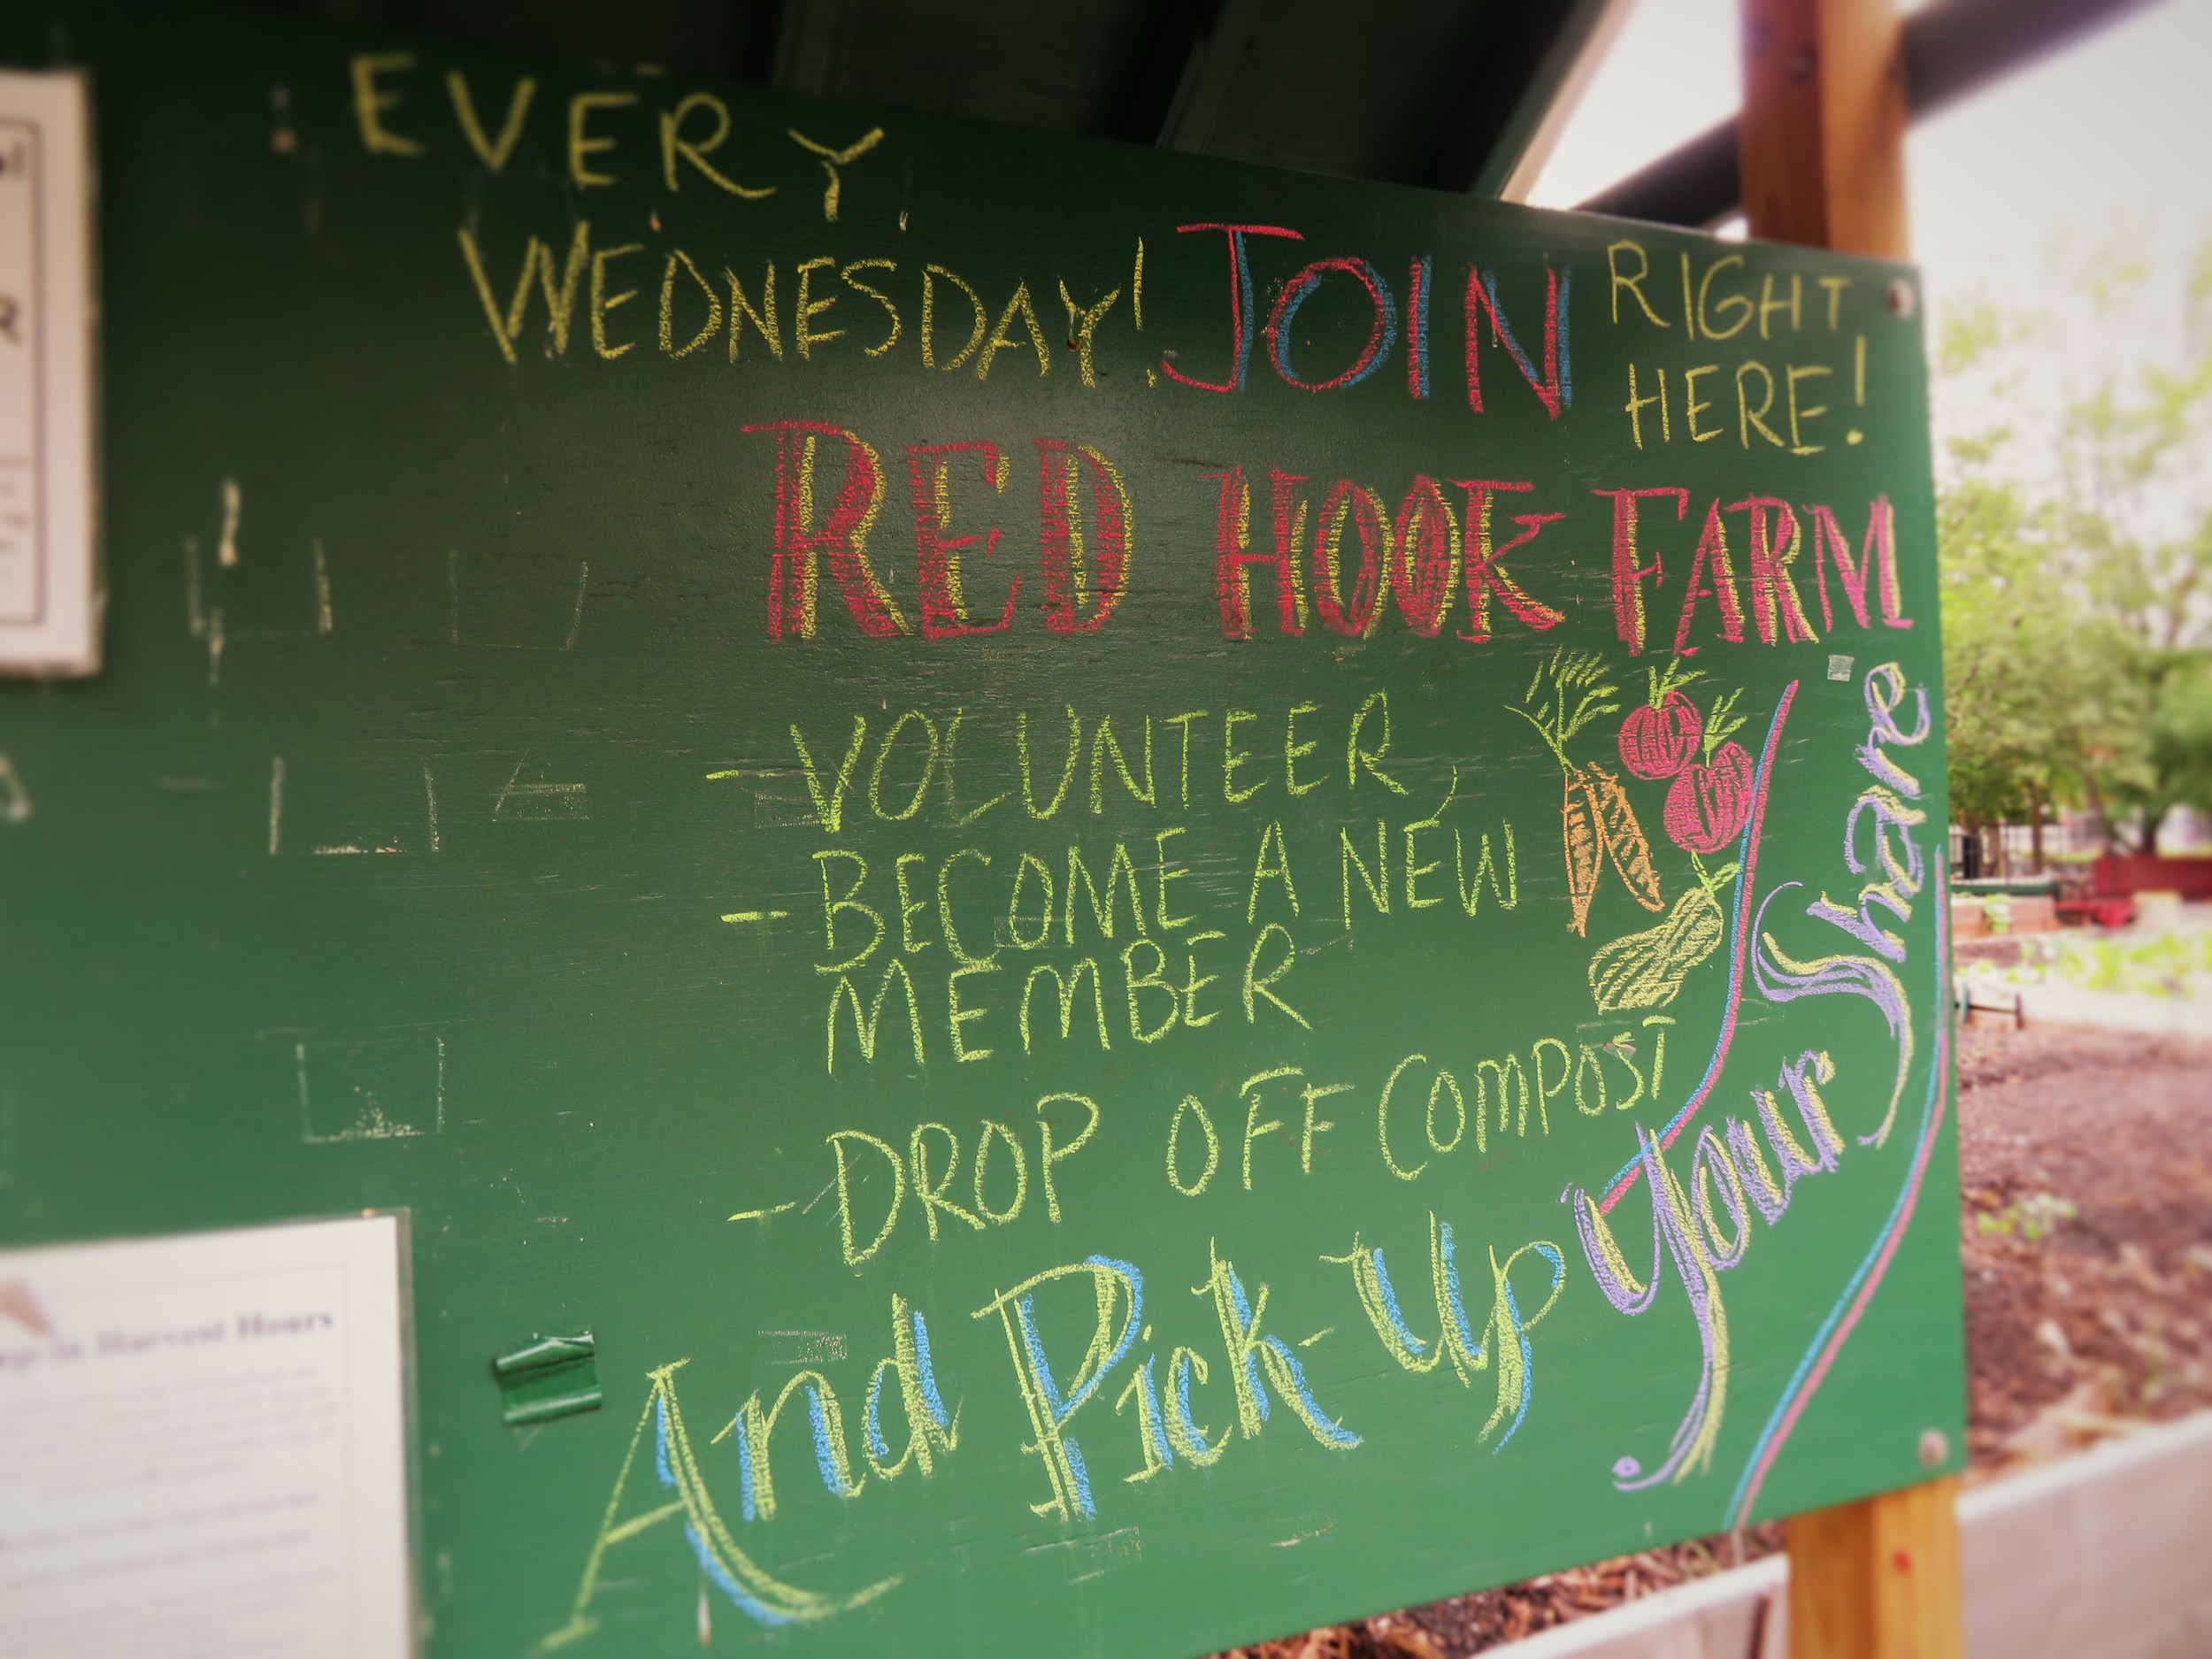 EVERY
WEDNESDAY! JOIN
RIGHT
HERE!
RED HOOK FARM
- VOLUNTEER,
- BECOME A NEW
MEMBER
- DROP OFF COMPOST
And Pick-Up Your Share
Harvest Hours